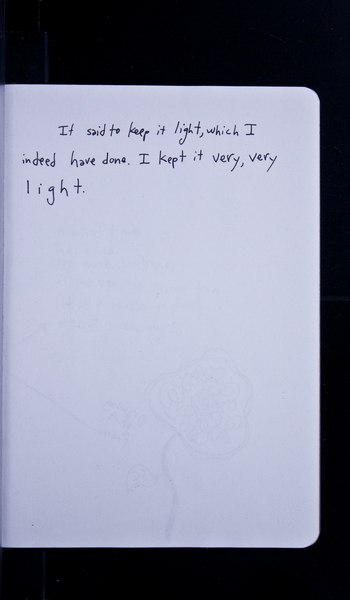 It said to keep it light, which I
indeed have done. I kept it very, very
light.